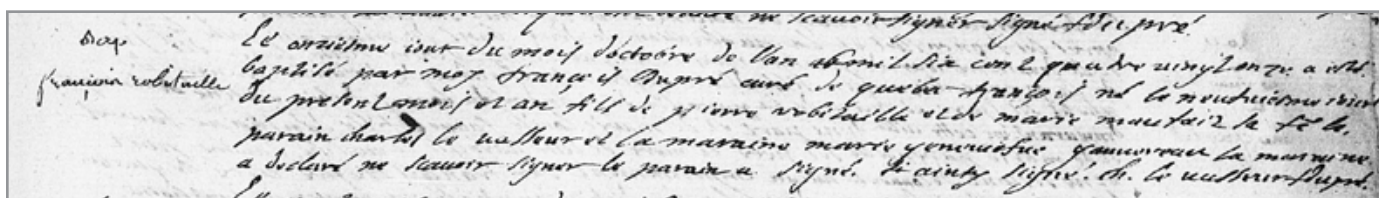 ne scavoir signer signé fdupré
Bap
françois robitaille
Le onziesme iour du mois d'octobre de l'an mil six cent quatre vingt onze a esté
baptisé par moy françois Dupré curé de quebec françois né le neufuiesme iour
du present mois et an fils de pierre robitaille et de marie maufait sa fē le
parain charles le vasseur et la maraine marie geneviefue gauvreau la maraine
a declaré ne scavoir signer le parain a signé. ainsy signé. ch. le vasseur fdupré.